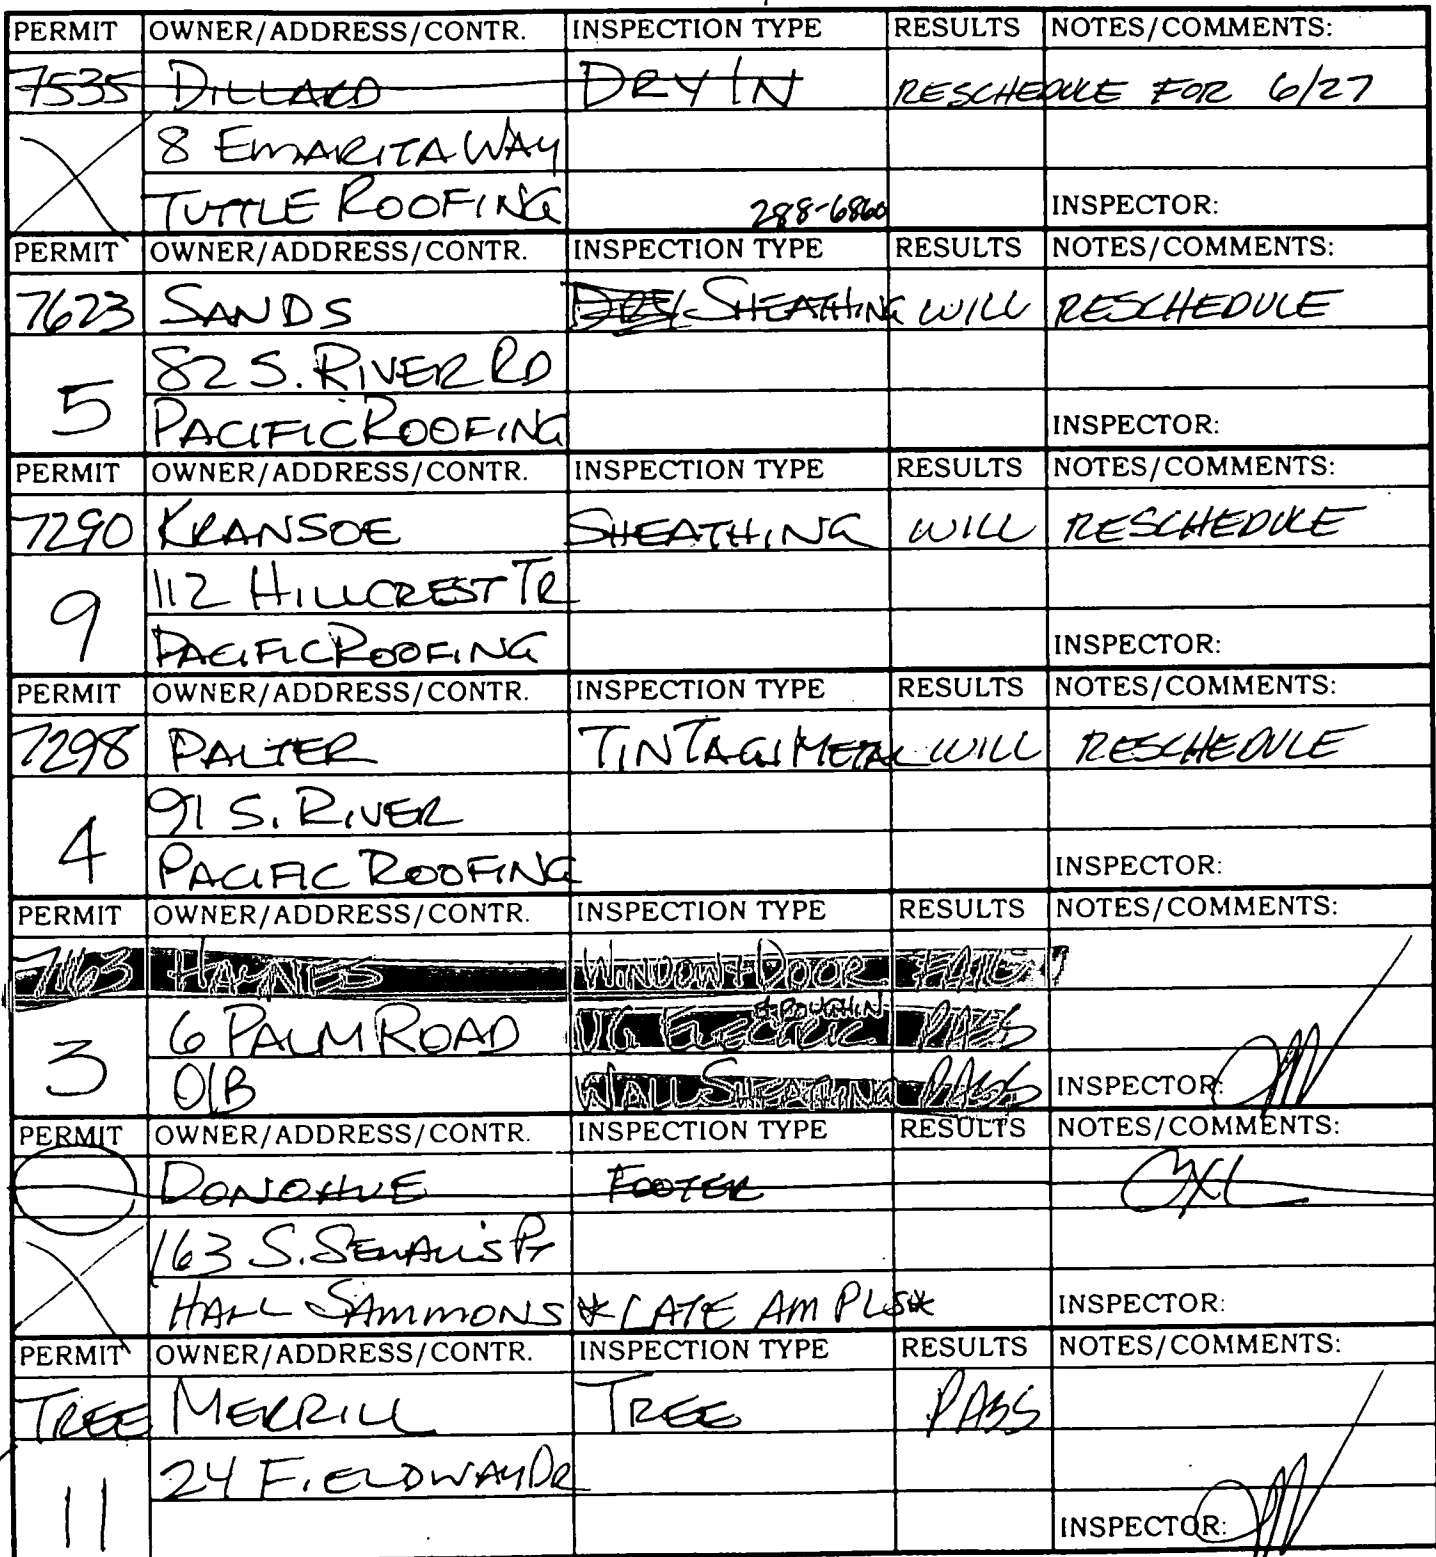 PERMIT OWNER/ADDRESS/CONTR. INSPECTION TYPE RESULTS NOTES/COMMENTS:
7535 DILLARD DRY IN RESCHEDULE FOR 6/27
8 EMARITA WAY
TUTTLE ROOFING 288-6860 INSPECTOR:
PERMIT OWNER/ADDRESS/CONTR. INSPECTION TYPE RESULTS NOTES/COMMENTS:
7623 SANDS SHEATHING WILL RESCHEDULE
82 S. RIVER RD
5
PACIFIC ROOFING INSPECTOR:
PERMIT OWNER/ADDRESS/CONTR. INSPECTION TYPE RESULTS NOTES/COMMENTS:
7290 KRANSOE SHEATHING WILL RESCHEDULE
112 HILLCREST TR
9
PACIFIC ROOFING INSPECTOR:
PERMIT OWNER/ADDRESS/CONTR. INSPECTION TYPE RESULTS NOTES/COMMENTS:
7298 PALTER TIN TAG/METAL WILL RESCHEDULE
91 S. RIVER
4
PACIFIC ROOFING INSPECTOR:
PERMIT OWNER/ADDRESS/CONTR. INSPECTION TYPE RESULTS NOTES/COMMENTS:
HAYNES WINDOW+DOOR
6 PALM ROAD UG ELECTRIC PASS
3
O/B WALL SHEATHING PASS INSPECTOR:
PERMIT OWNER/ADDRESS/CONTR. INSPECTION TYPE RESULTS NOTES/COMMENTS:
DONOHUE FOOTER CXL
163 S. SEWALL'S PT
HALL SAMMONS *LATE AM PLS* INSPECTOR:
PERMIT OWNER/ADDRESS/CONTR. INSPECTION TYPE RESULTS NOTES/COMMENTS:
TREE MERRILL TREE PASS
24 FIELDWAY DR
11
INSPECTOR: